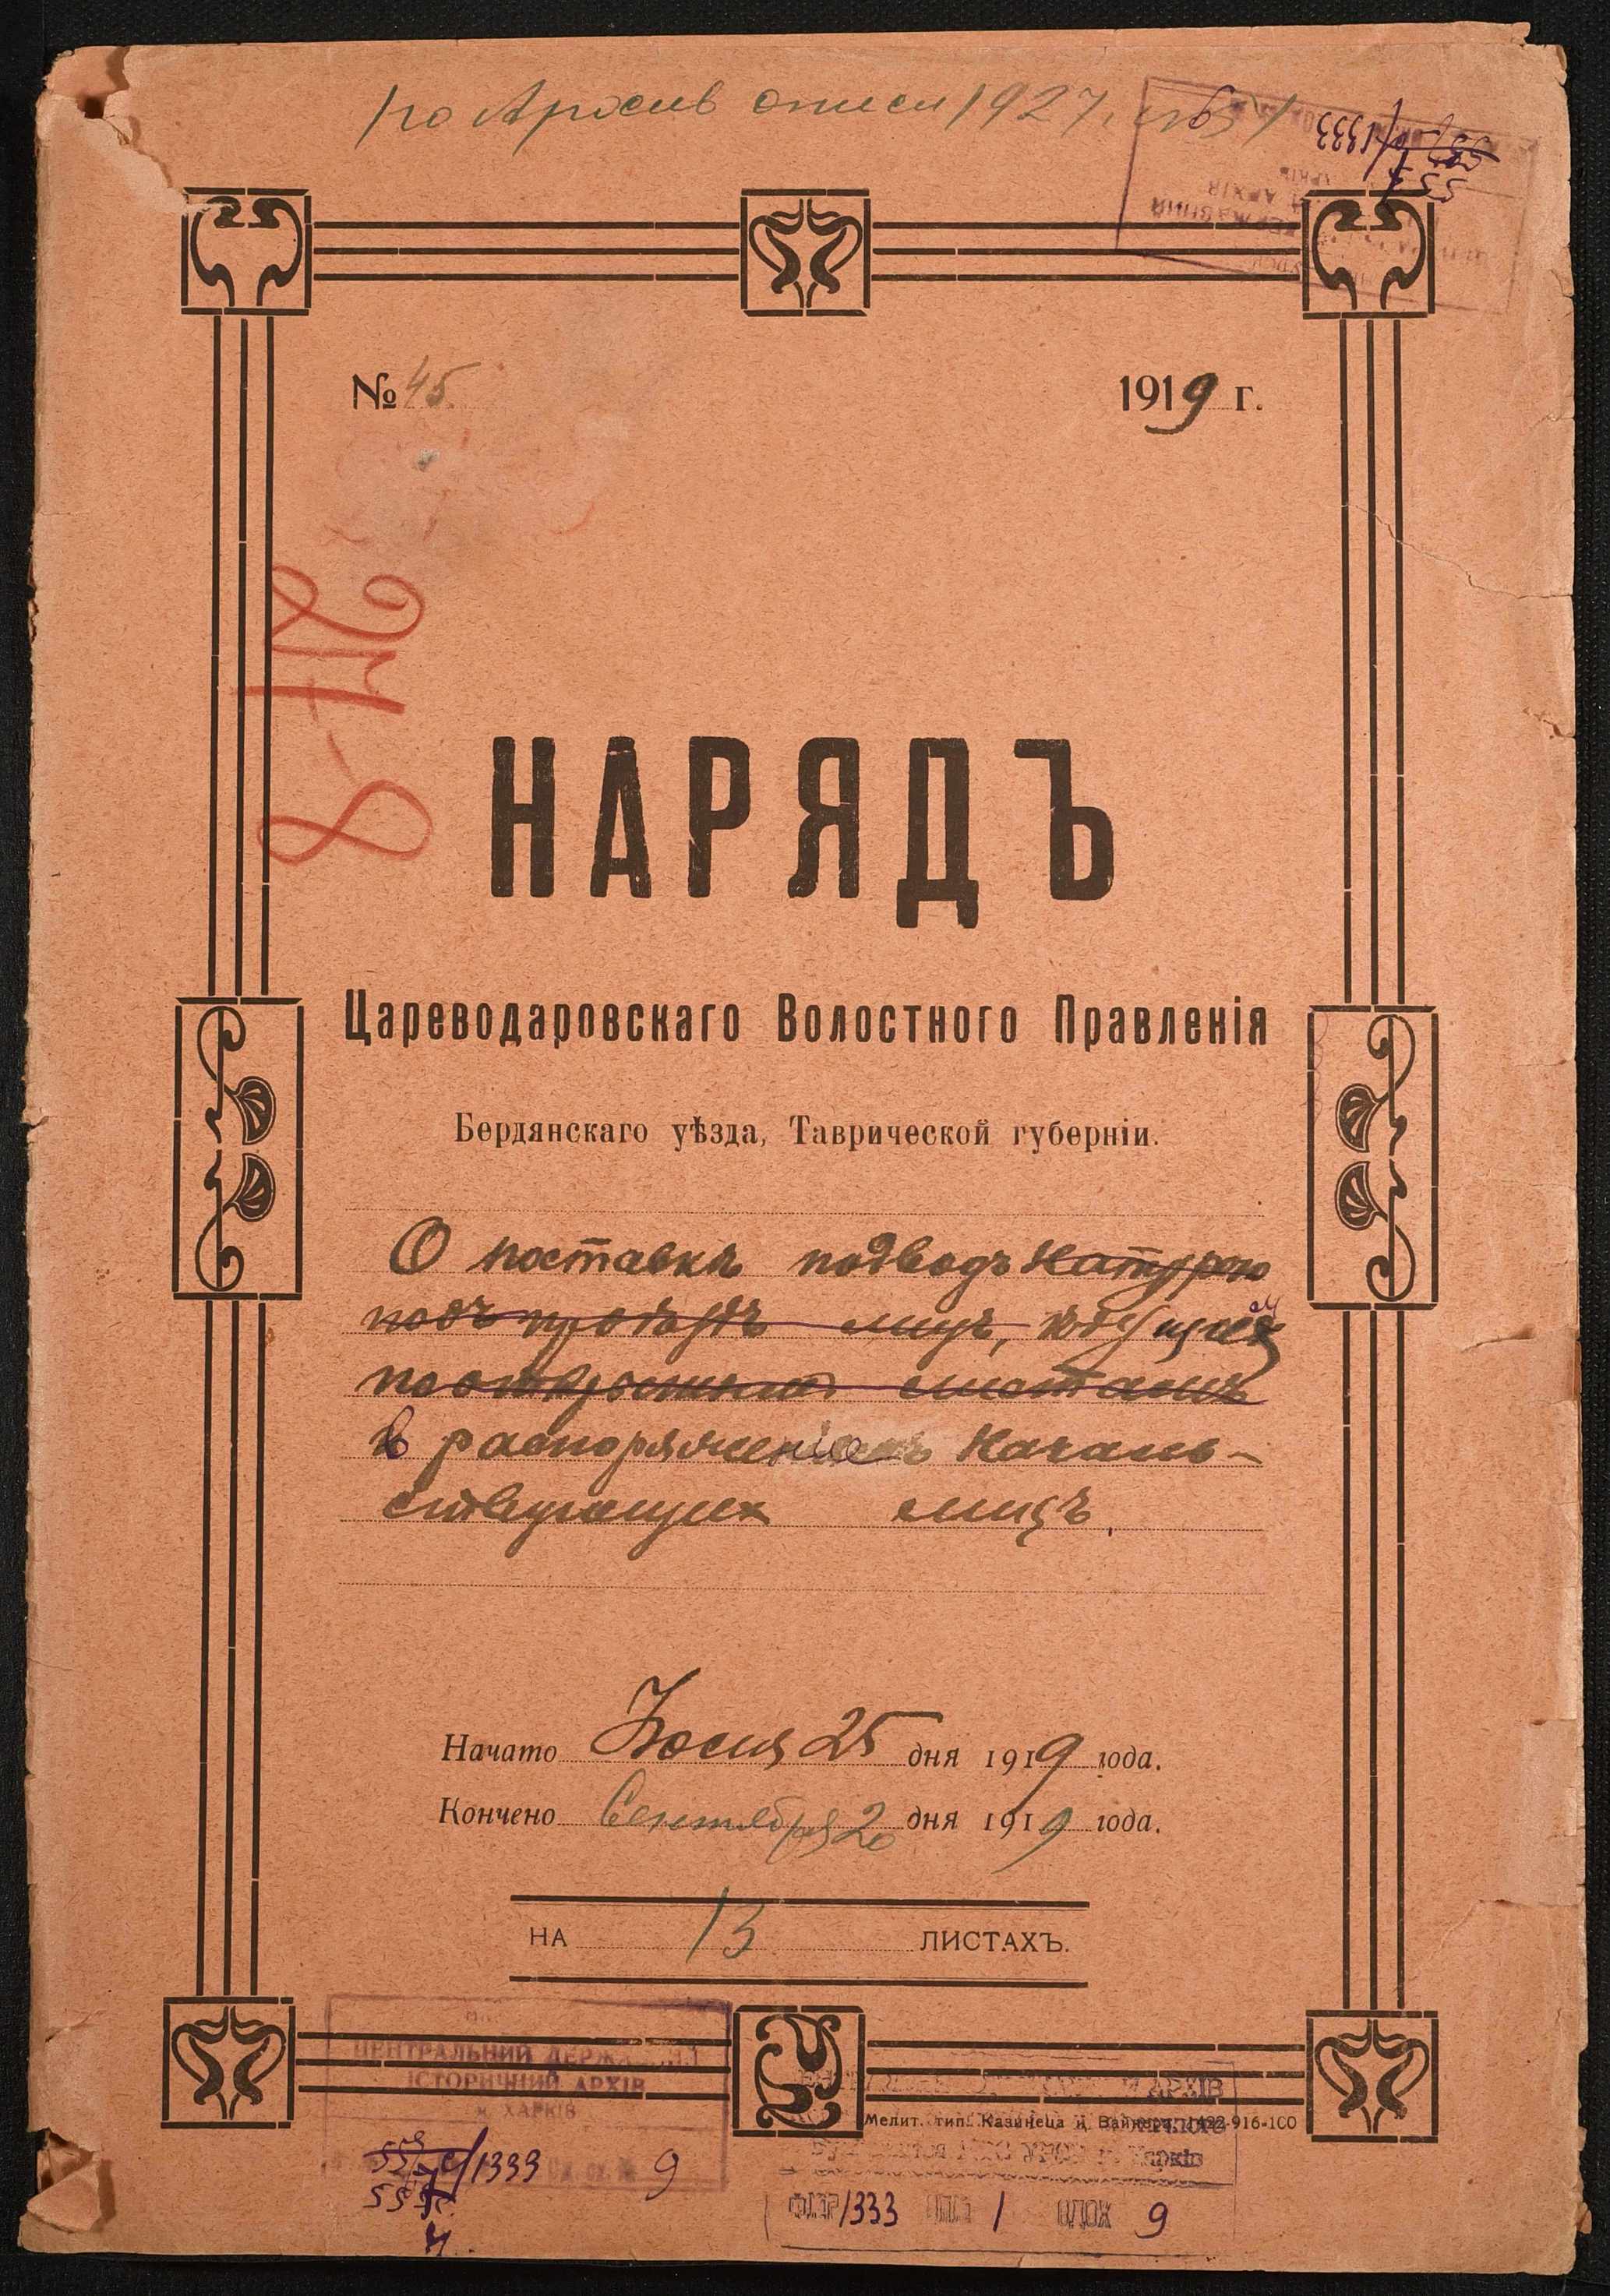 по Архив описи 1927, №
№ 45
1919 г.
НАРЯДЪ
Цареводаровскаго Волостного Правленія
Бердянскаго уѣзда, Таврической губерніи.
О поставкѣ подводъ натурою
подъ проѣздъ лицъ, ѣдущихъ
по открытымъ листамъ
в распоряжение началь-
ствующих лицъ.
Начато Июля 25 дня 1919 года.
Кончено Сентября 20 дня 1919 года.
НА 13 ЛИСТАХЪ.
ЦЕНТРАЛЬНИЙ ДЕРЖАВНИЙ
ІСТОРИЧНИЙ АРХІВ
м. ХАРКІВ
Р/1333 9
АРХІВ
Мелит. тип. Казинеца и Вайнера. 1422-916-100
Харків
1333 1 9